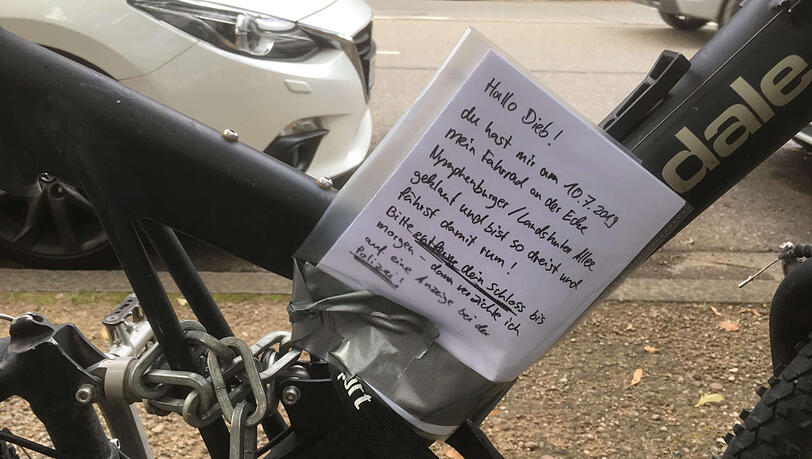 Hallo Dieb!
du hast mir am 10.7.2019
mein Fahrrad an der Ecke
Nymphenburger/Landshuter Allee
geklaut und bist so dreist und
fährst damit rum!
Bitte entferne dein Schloss bis
morgen – dann verzichte ich
auf eine Anzeige bei der
Polizei!
dale